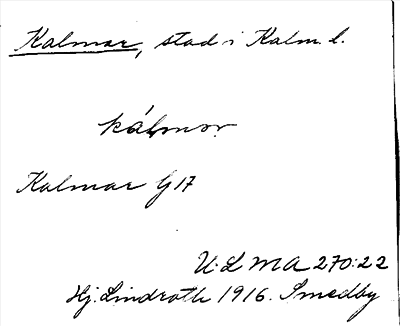 Kalmar, stad i Kalm. l.
kálmar
Kalmar G 17
U.L.M.A 270:22
Hj. Lindroth 1916. Smedby